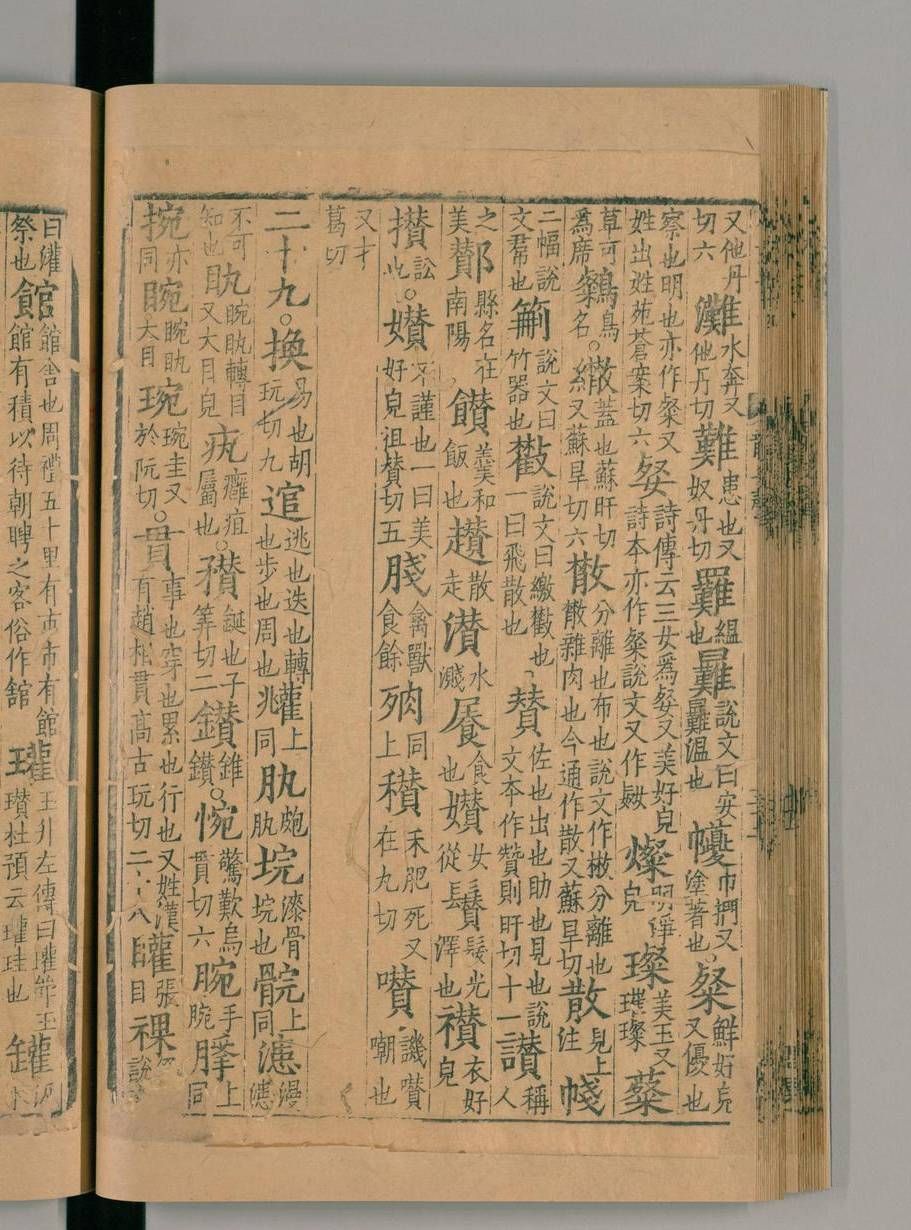 又他丹切六灘水奔又他丹切難患也又奴丹切縕也說文曰安溫也㡓巾捫又塗著也。粲鮮好皃又優也
察也明也亦作粲又姓出姓苑蒼案切六㛑詩傳云三女爲㛑又美好皃詩本亦作粲說文又作燦明淨皃璨美玉又璀璨薒
草可爲席鳥名。繖蓋也蘇旰切又蘇旱切六㪚分離也布也說文作㪔分離也㪚雜肉也今通作散又蘇旱切散見上注帴
二幅說文帬也說文曰竹器也說文曰繳也一曰飛散也。賛佐也出也助也見也說文本作贊則旰切十一讃稱人
之美酇縣名在南陽饡羹和飯也趲散走灒水濺食也㜺女從鬢髮光澤也襸衣好皃
攢訟此。㜺不謹也一曰美好皃徂賛切五禽獸食餘同上穳禾肥死又在丸切囋譏囋嘲也
又才葛切
二十九。換易也胡玩切九逭逃也迭也轉也步也周也同上肒皰肒垸漆骨垸也同上漶漫漶
不可知也䀓睕䀓轉目又大目皃癰疽屬也。誕也子筭切二鑽錐鑽。惋驚歎烏貫切六腕手腕上同
捥亦同睕睕䀓大目琬琬圭又於阮切。貫事也穿也累也行也又姓漢有趙相貫高古玩切二十八矔張目祼說
曰灌祭也館館舍也周禮五十里有市市有館館有積以待朝聘之客俗作舘瓘玉升左傳曰瓘斚玉瓚杜預云瓘珪也罐汲水